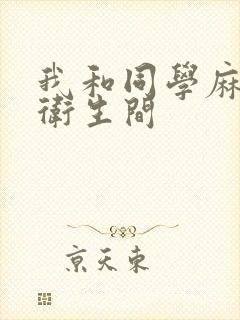 我和同學麻
衛生間
京天東